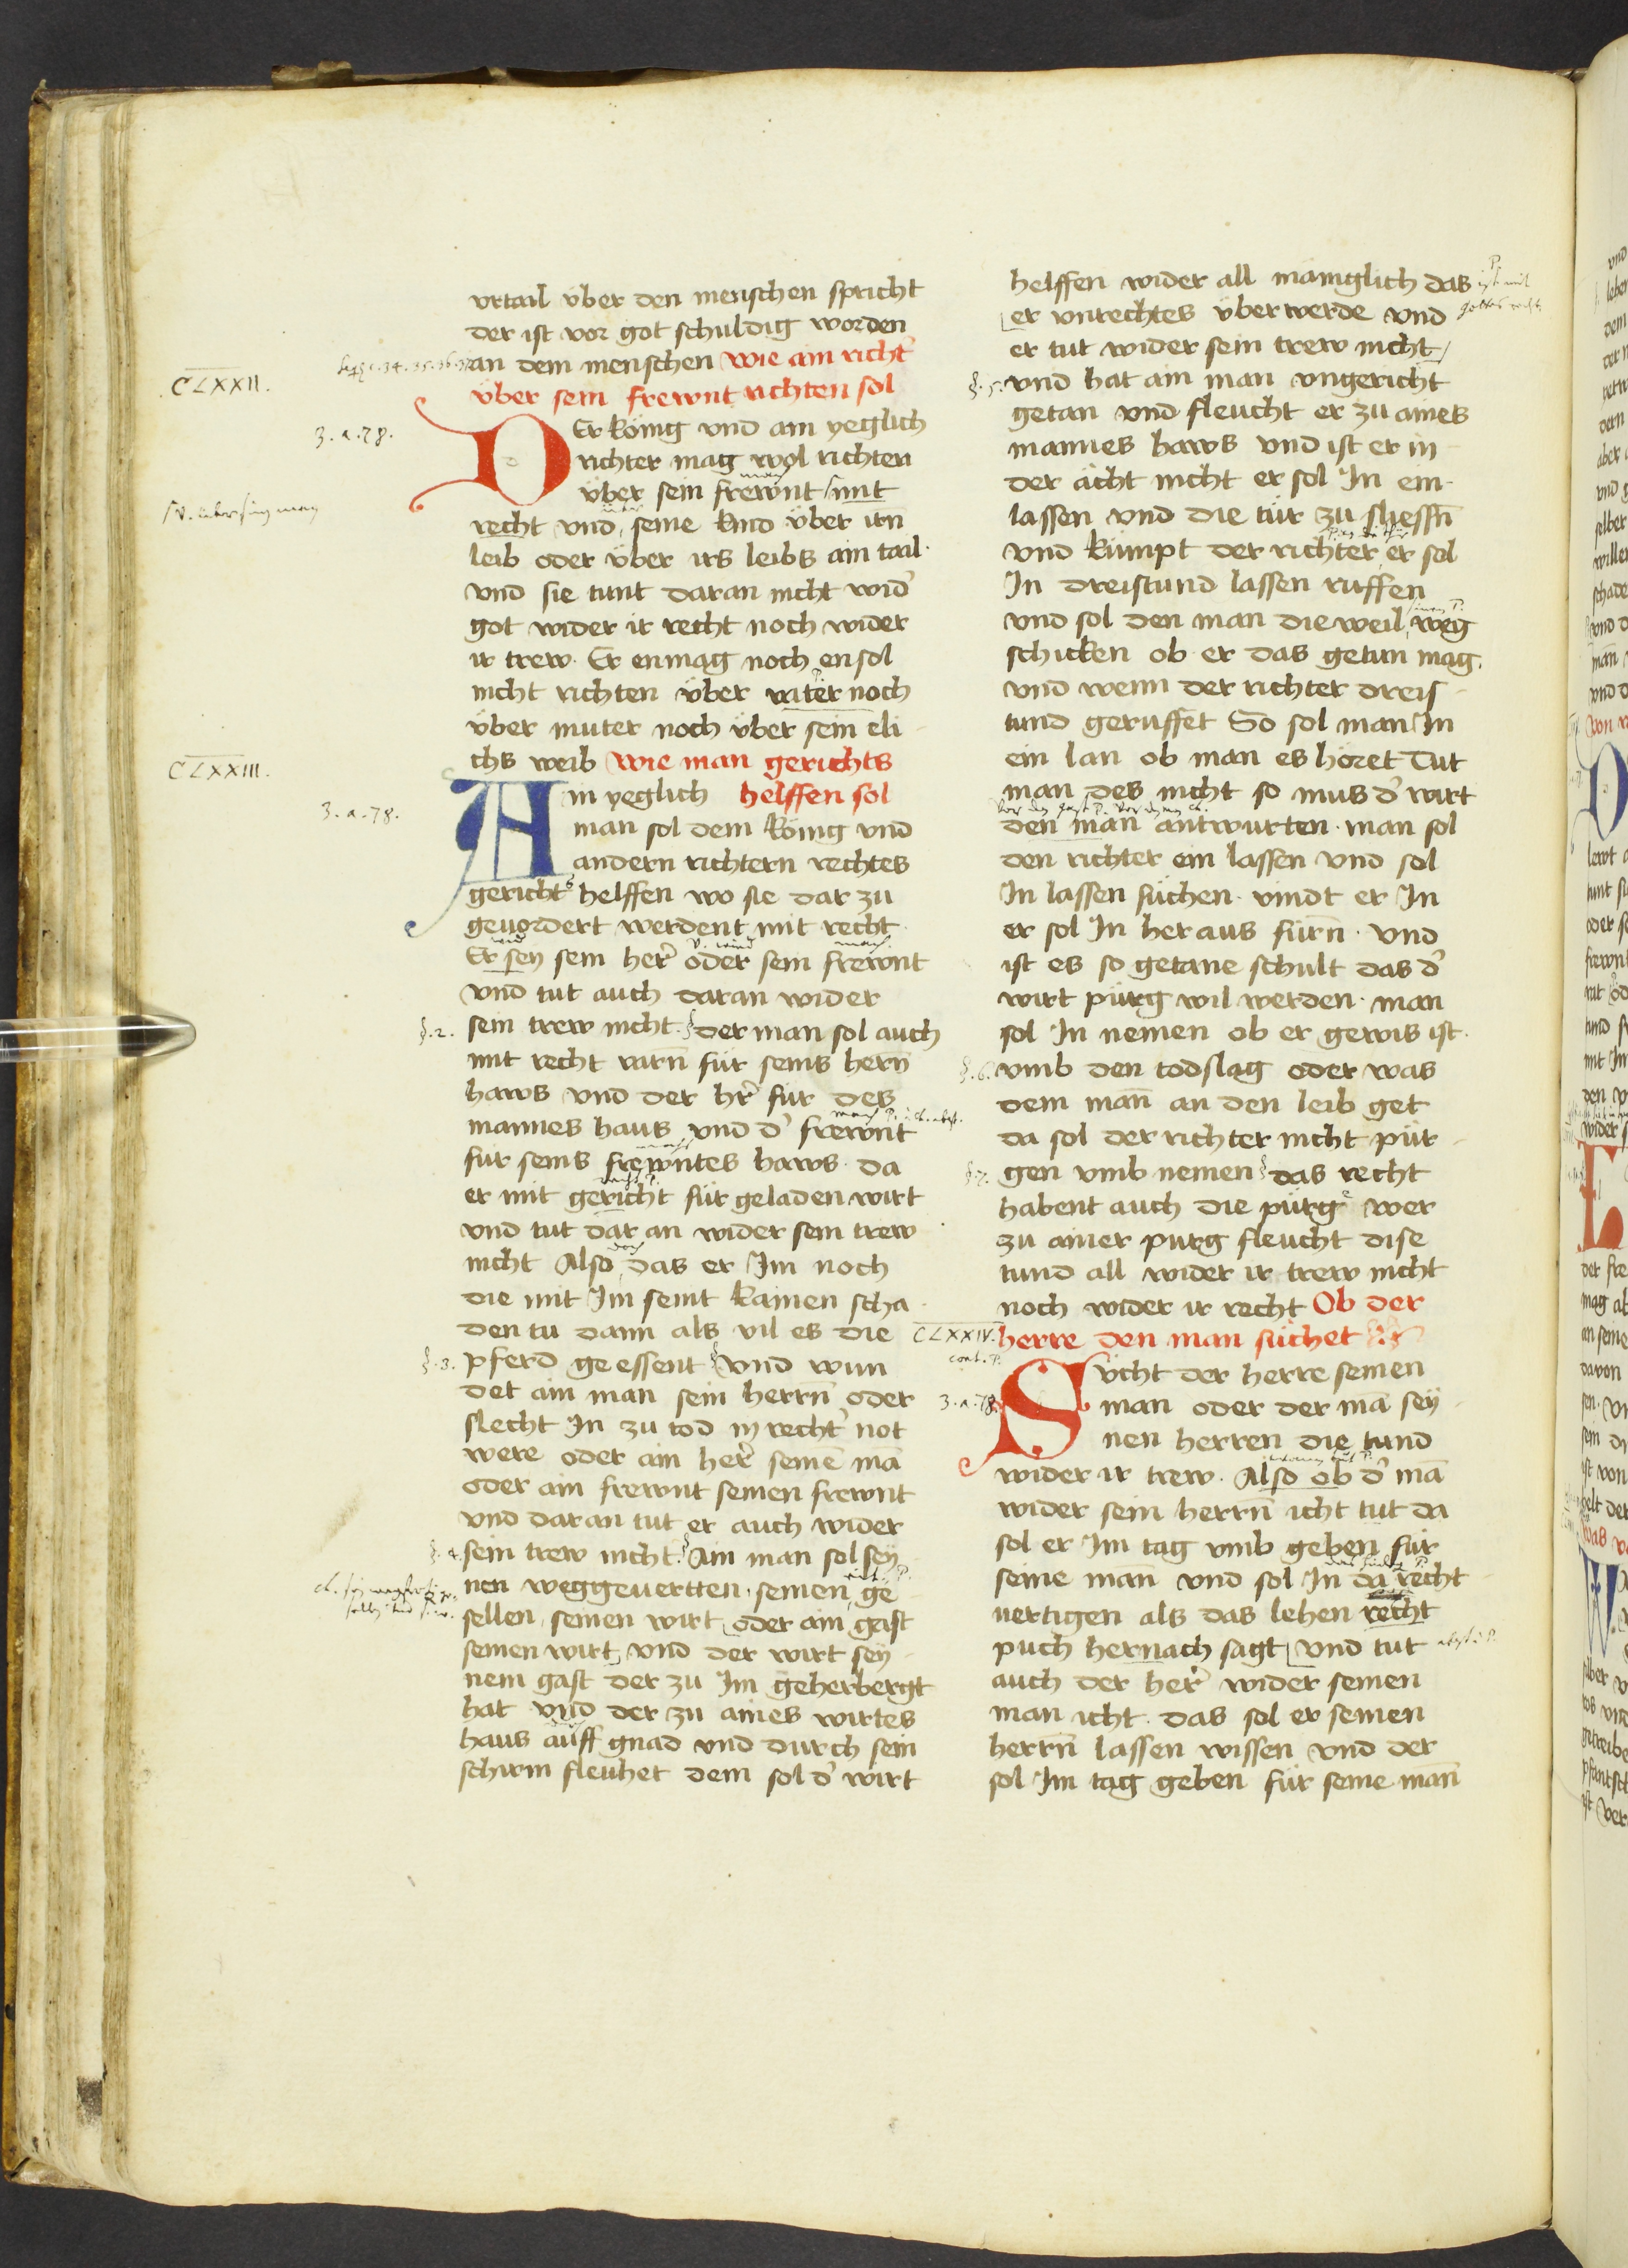 vrtail über den menschen spricht
der ist vor got schuldig worden
an dem menschen wie ain richt̉
über sein frewnt richten sol
CLXXII.
3. a. 78.
DEr könig vnd ain yeglich
richter mag wol richten
über sein frewnt mit
recht vnd seine kind über irn̄
leib oder über irs leibs ain tail
vnd sie tunt daran nicht wid̉
got wider ir recht noch wider
ir trew. Er enmag noch ensol
nicht richten über vater noch
über muter noch über sein eli
chs weib wie man gerichts
CLXXIII.
3. a. 78.
Ain yeglich helffen sol
man sol dem könig vnd
andern richtern rechtes
gerichts helffen wo sie dar zu
geuordert werdent mit recht
Er sey sein her̉ oder sein frewnt
vnd tut auch daran wider
§. 2. sein trew nicht. der man sol auch
mit recht varn̄ für seins hern̄
haws vnd der hr̉ für des
mannes haus vnd d̉ frewnt
für seins frewntes haws. da
er mit gericht für geladen wirt
vnd tut dar an wider sein trew
nicht Also das er Im noch
die mit Im seint kainen scha
den tu dann als vil es die
§. 3. pferd geessent vnd wun
det ain man sein herrn̄ oder
slecht In zu tod in recht̉ not
were oder ain her̉ seinē mā
oder ain frewnt seinen frewnt
vnd daran tut er auch wider
§. 4. sein trew nicht. Ain man sol sey
nen weggeuertten. seinen ge
sellen seinen wirt oder ain gast
seinen wirt vnd der wirt sey
nem gast der zu Im geherbergt
hat vnd der zu aines wirtes
haus auff gnad vnd durch sein
schirm fleuhet dem sol d̉ wirt
helffen wider all mäniglich das
er vnrechtes über werde vnd
er tut wider sein trew nicht
§. 5. vnd hat ain man vngericht
getan vnd fleucht er zu aines
mannes haws vnd ist er in
der ächt nicht er sol In ein
lassen vnd die tür zu sliessn̄
vnd kümpt der richter er sol
In dreistund lassen ruffen
vnd sol den man dieweil weg
schicken ob er das getun mag.
vnd wenn der richter dreis
tund geruffet So sol man In
ein lan ob man es höret Tut
man des nicht so mus d̉ wirt
den man antwurten. man sol
den richter ein lassen vnd sol
In lassen süchen. vindt er In
er sol In her aus fürn̄. vnd
ist es so getane schult das d̉
wirt pürg wil werden. man
sol In nemen ob er gewis ist.
§. 6. vmb den todslag oder was
dem man̄ an den leib get
da sol der richter nicht pür
§. 7. gen vmb nemen das recht
habent auch die pürge wer
zu ainer purg fleucht dise
tund all wider ir trew nicht
noch wider ir recht Ob der
CLXXIV. herre den man süchet
cont. P.
3. a. 78.
Sücht der herre seinen
man oder der mā sey
nen herren die tund
wider ir trew. Also ob d̉ mā
wider sein herrn̄ icht tut da
sol er Im tag vmb geben für
seine man̄ vnd sol In da recht
uertigen als das lehen recht
puch hernach sagt vnd tut
auch der her̉ wider seinen
man icht. das sol er seinen
herrn̄ lassen wissen vnd der
sol Im tag geben für seine man̄